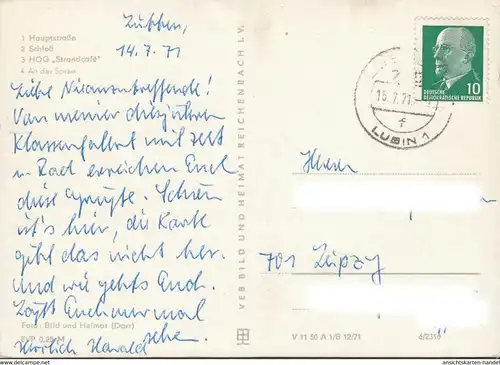 Lübben,
14.7.71
1 Hauptstraße
2 Schloß
3 HOG „Strandcafé"
4 An der Spree
Liebe
Von meiner diesjährigen
Klassenfahrt mit Zelt
u. Rad erreichen Euch
diese Grüße. Schön
ist's hier, die Karte
gibt das nicht her.
Und wie geht's Euch.
Laßt Euch nur mal
sehen.
Herzlich Harald
Foto: Bild und Heimat (Darr)
EVP 0,25 M
VEB BILD UND HEIMAT REICHENBACH I. V.
DEUTSCHE
DEMOKRATISCHE REPUBLIK
10
15.7.71
f
LUBIN 1
Herrn
701 Leipzig
V 11 50 A 1/B 12/71
6/2316
www.ansichtskarten-lexikon.de